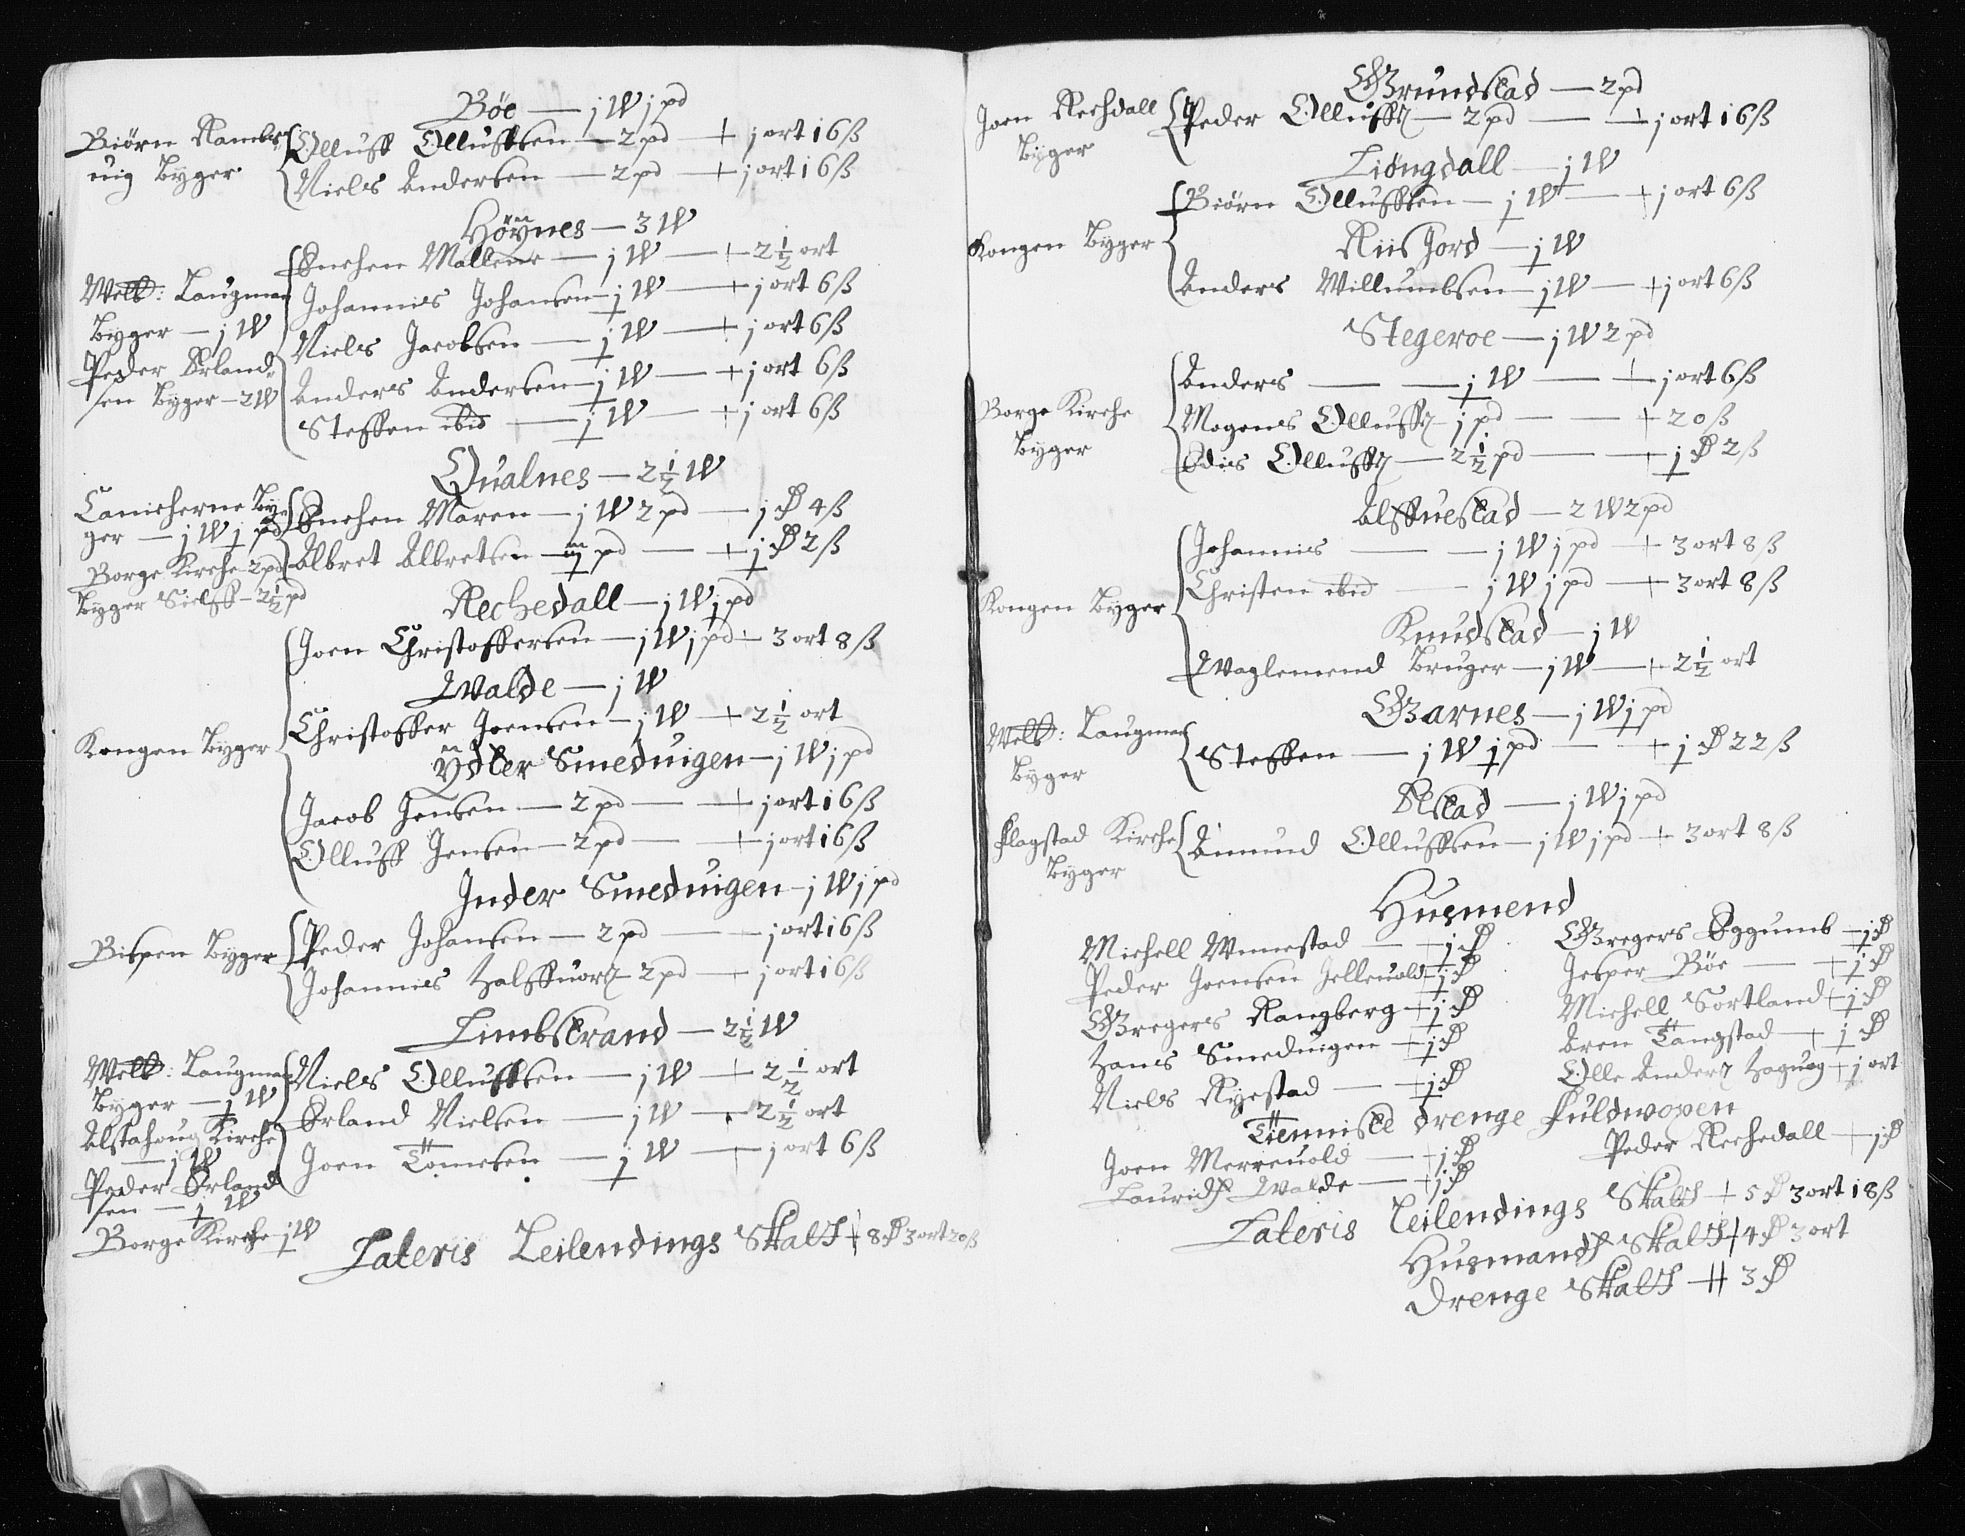 Bøe — j W j pd
Biørn Rambs
uig Byger
Olluff Olluffsen — 2 pd — + j ort 16 ß
Niels Andersen — 2 pd — + j ort 16 ß
Höÿnes — 3 W
Welb: Laugman
Byger — j W
Peder Erland
sen Byger — 2 W
Enchen Mallene — j W — + 2½ ort
Johannis Johansen — j W — + j ort 6 ß
Niels Jacobsen — j W — + j ort 6 ß
Anders Andersen — j W — + j ort 6 ß
Steffen ibid — j W — + j ort 6 ß
Qualnes — 2½ W
Canicherne By
ger — j W j pd
Borge Kirche 2 pd
Byger Sielff — 2½ pd
Enchen Maren — j W 2 pd — j ₰ 4 ß
Albret Albretsen — j pd — + j ₰ 2 ß
Rechedall — j W j pd
Kongen Byger
Joen Christoffersen — j W j pd — 3 ort 8 ß
Walde — j W
Christoffer Joensen — j W — + 2½ ort
Ÿdter Smeduigen — j W j pd
Jacob Jensen — 2 pd — + j ort 16 ß
Olluff Jensen — 2 pd — + j ort 16 ß
Inder Smeduigen — j W j pd
Bispen Byger
Peder Johansen — 2 pd — j ort 16 ß
Johannis Halffuorß — 2 pd — + j ort 16 ß
Limbstrand — 2½ W
Welb: Laugman
Byger — j W
Alstahoug Kirche
— j W
Peder Erland
sen — j W
Borge Kirche j W
Niels Olluffsen — j W — + 2½ ort
Erland Nielsen — j W — 2½ ort
Joen Tomesen — j W — + j ort 6 ß
Lateris Leilendings Skatt + 8 ₰ 3 ort 20 ß
Grundstad — 2 pd
Joen Rechdall
Byger
Peder Olluffß — 2 pd — + j ort 16 ß
Liøngdall — j W
Kongen Byger
Biørn Olluffsen — j W — + j ort 6 ß
Riis Jord — j W
Anders Willumbsen — j W — + j ort 6 ß
Stegeroe — j W 2 pd
Borge Kirche
Byger
Anders — j W — + j ort 6 ß
Mogens Olluffß — j pd — + 20 ß
Edis Olluffß — 2½ pd — + j ₰ 2 ß
Alffuestad — 2 W 2 pd
Kongen Byger
Johannis — j W j pd — + 3 ort 8 ß
Christen ibid — j W j pd — + 3 ort 8 ß
Knudstad — j W
Waglemend Bruger — j W — + 2½ ort
Garnes — j W j pd
Welb: Laugman
Byger
Steffen — j W j pd — + j ₰ 22 ß
Restad — j W j pd
Flagstad Kirche
Byger
Amund Olluffsen — j W j pd — + 3 ort 8 ß
Husmend
Michell Wnnestad — + j ₰
Peder Joensen Jelleuold — + j ₰
Gregers Rangberg — + j ₰
Hans Smeduigen — + j ₰
Niels Ryestad — + j ₰
Gregers Eggumb — + j ₰
Jesper Bøe — + j ₰
Michell Sortland — + j ₰
Aren Tangstad — + j ₰
Olle Anderß Haguog + j ort
Tienniste drenge fuldwoxen
Joen Merreuold — + j ₰
Lauridß Walde — + j ₰
Peder Rechedall — + j ₰
Lateris Leilendings Skatt + 5 ₰ 3 ort 18 ß
Husmandß Skatt + 4 ₰ 3 ort
Drenge Skatt ++ 3 ₰